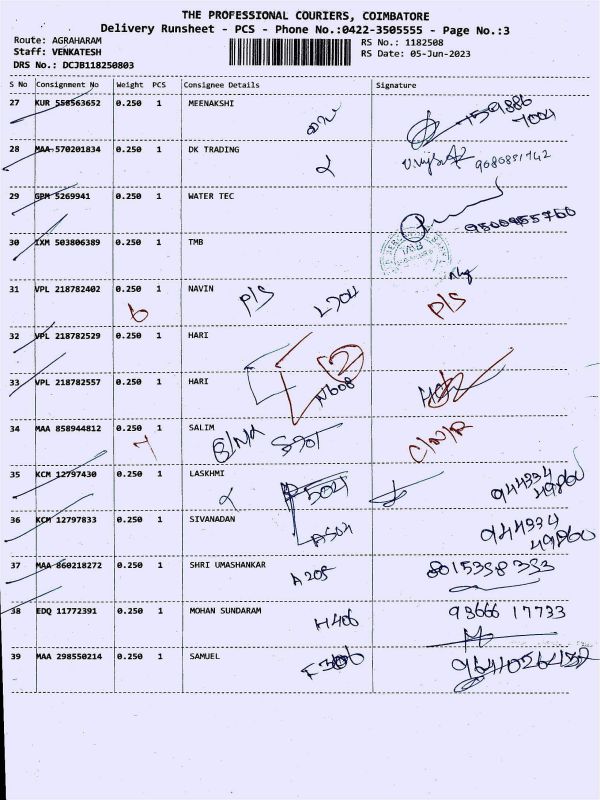 THE PROFESSIONAL COURIERS, COIMBATORE
Delivery Runsheet - PCS - Phone No.:0422-3505555 - Page No.:3
Route: AGRAHARAM
RS No.: 1182508
Staff: VENKATESH
RS Date: 05-Jun-2023
DRS No.: DCJB118250803
S No Consignment No Weight PCS Consignee Details Signature
27 KUR 550563652 0.250 1 MEENAKSHI
28 MAA 570201834 0.250 1 DK TRADING
9080851742
29 GPM 5269941 0.250 1 WATER TEC
9500955760
30 IXM 503806389 0.250 1 TMB
31 VPL 218782402 0.250 1 NAVIN P/S L704 P/S
6
32 VPL 218782529 0.250 1 HARI
2
N608
33 VPL 218782557 0.250 1 HARI
34 MAA 858944812 0.250 1 SALIM C/N/R
7
35 KCM 12797430 0.250 1 LASKHMI
944334
49860
36 KCM 12797833 0.250 1 SIVANADAN A504
944334
49860
37 MAA 860218272 0.250 1 SHRI UMASHANKAR A205 8015398353
38 EDQ 11772391 0.250 1 MOHAN SUNDARAM H406 93666 17733
39 MAA 298550214 0.250 1 SAMUEL